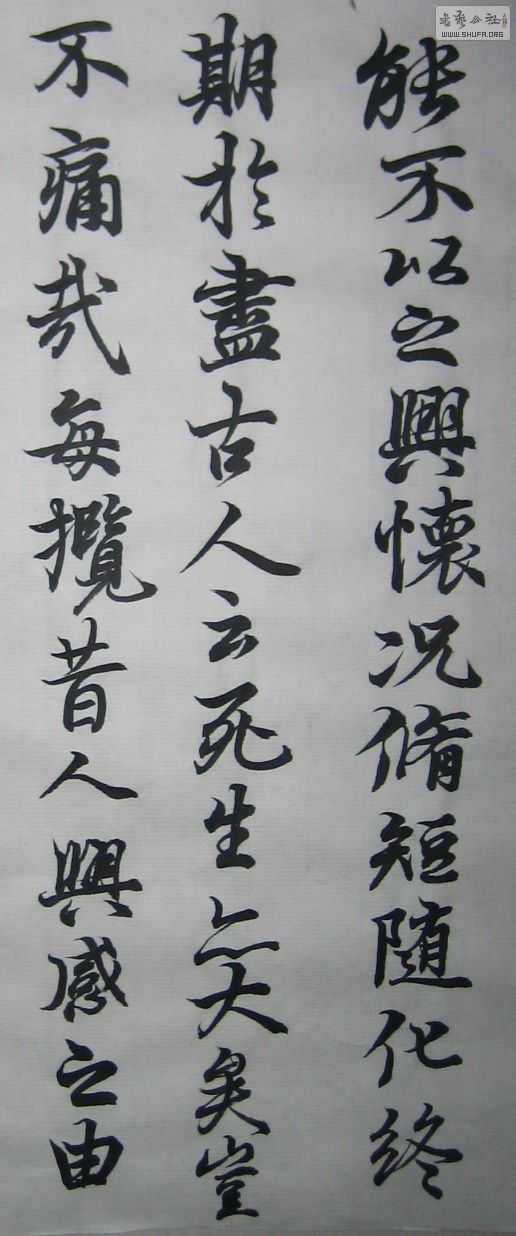 能不以之興懷况脩短随化終
期於盡古人云死生亦大矣豈
不痛哉每攬昔人興感之由
書藝公社
WWW.SHUFA.ORG